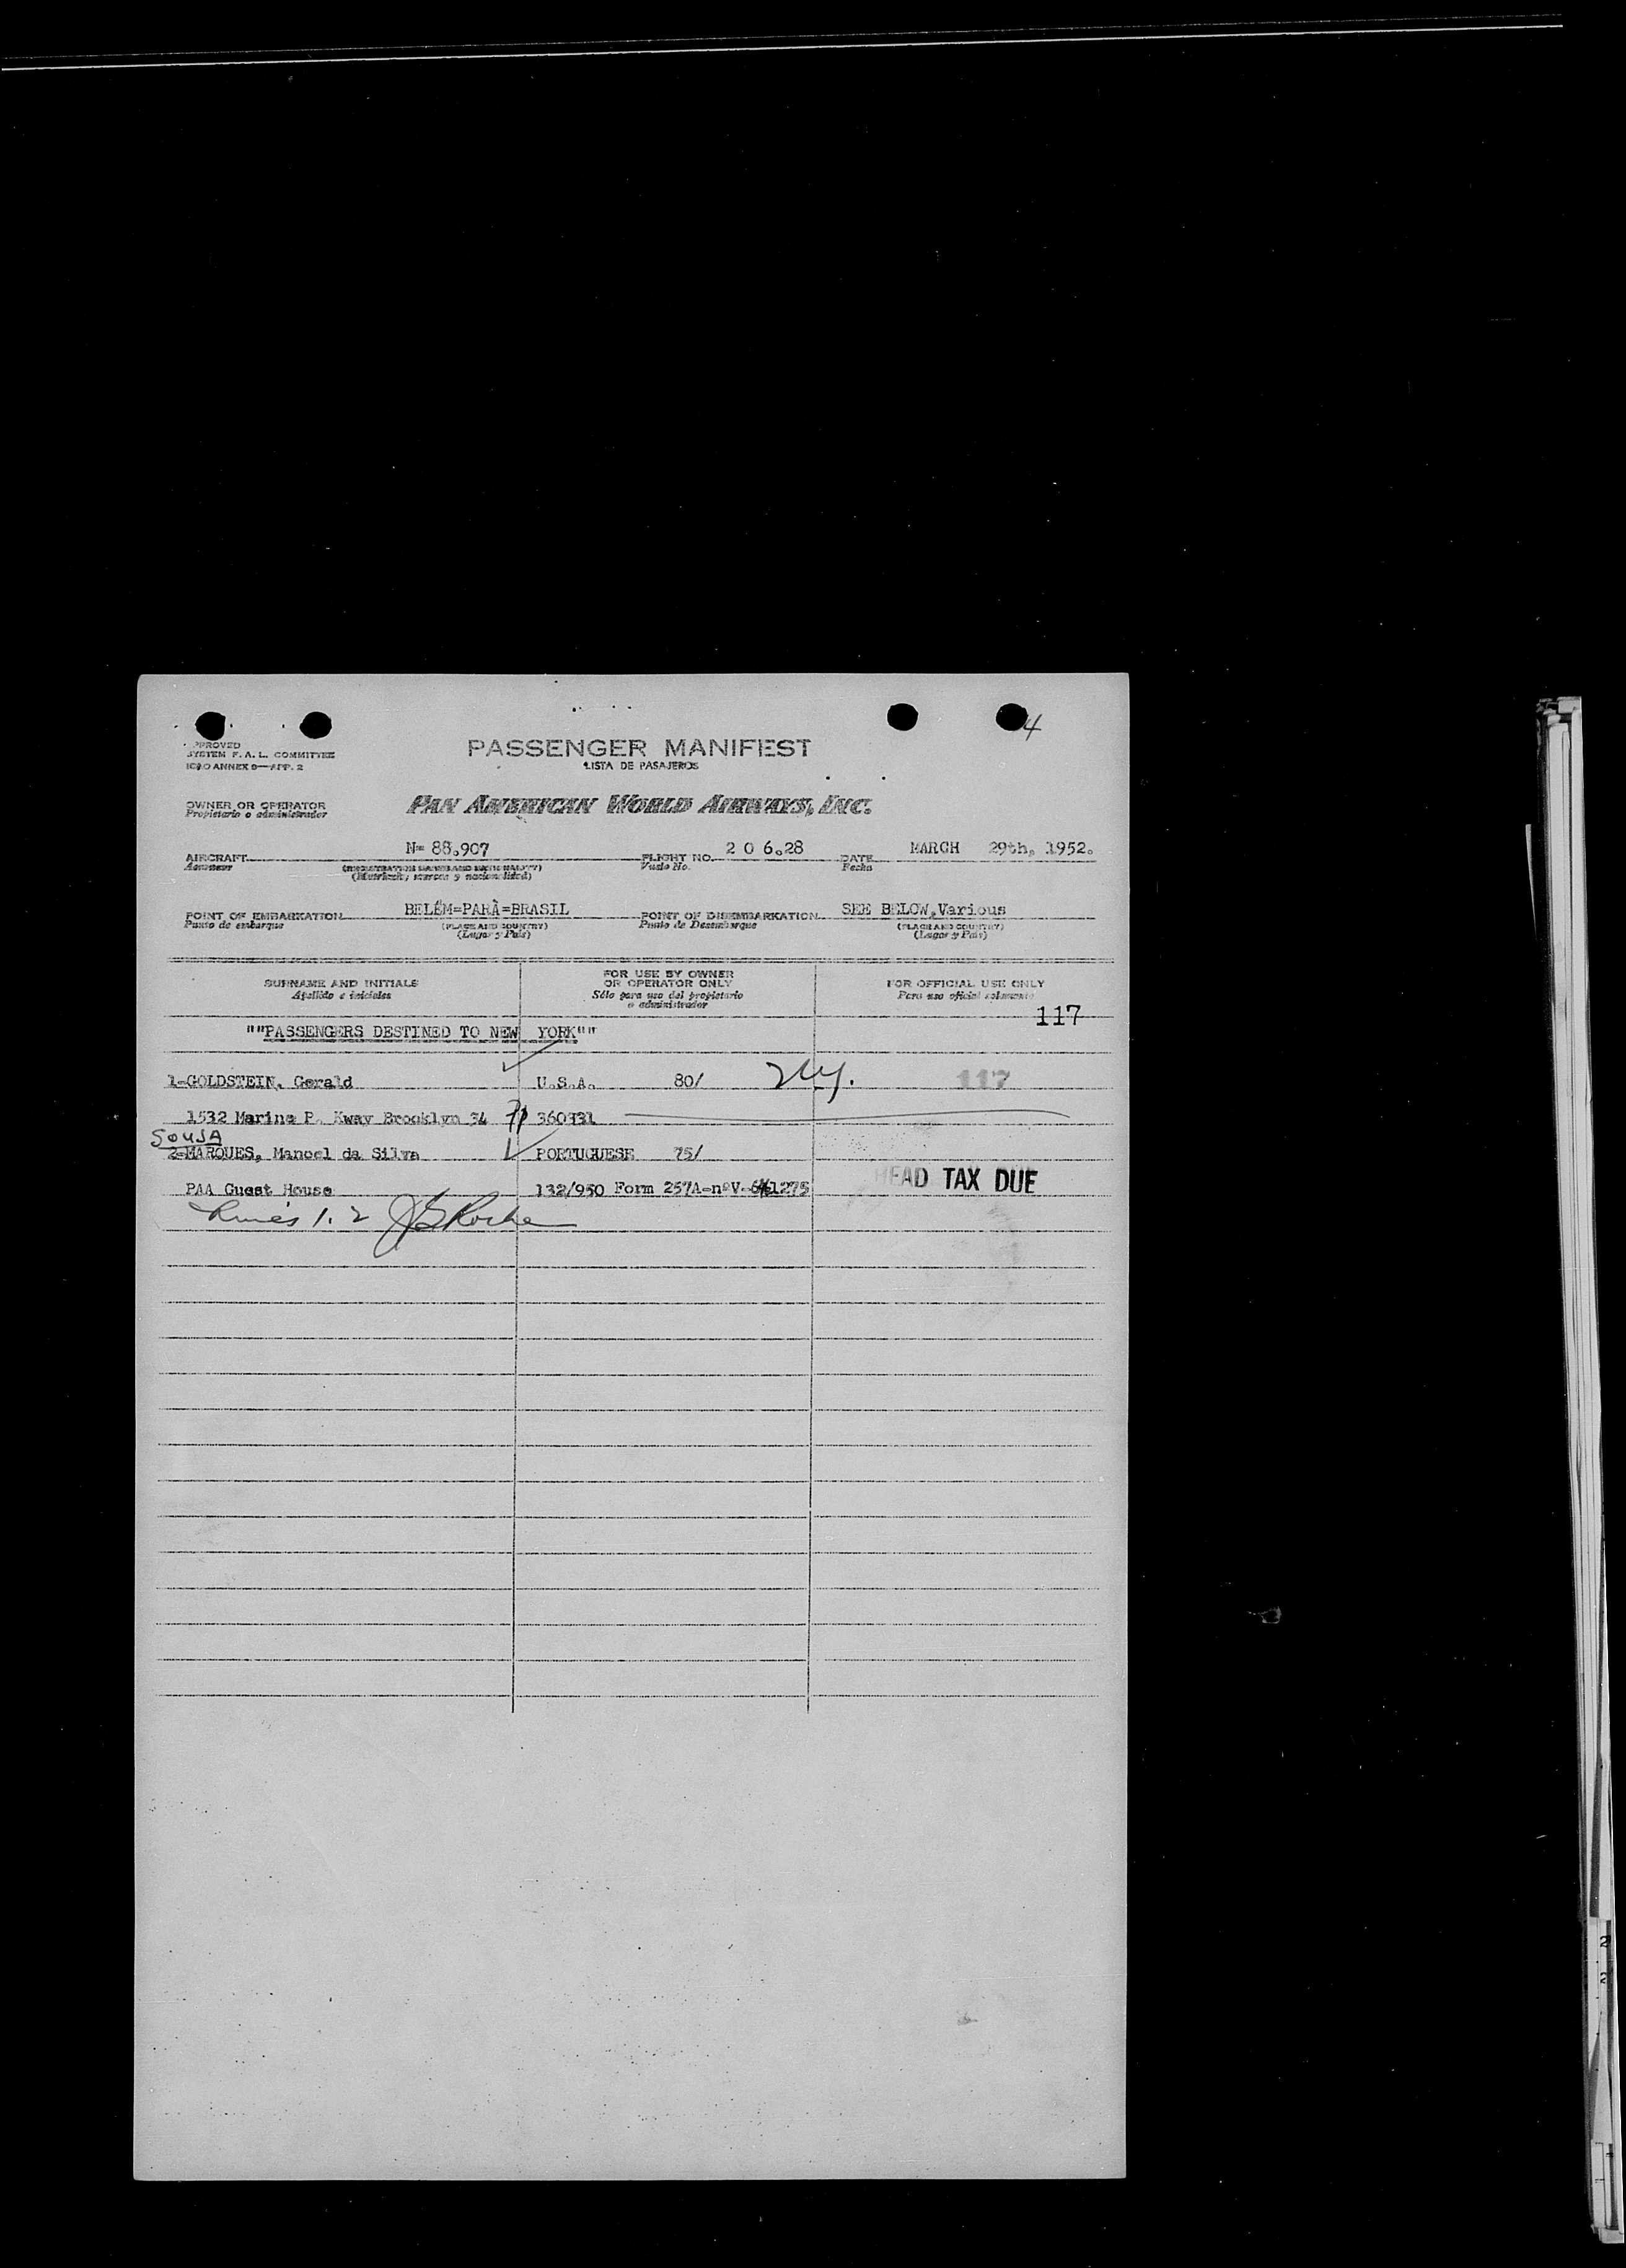 4
APPROVED
SYSTEM F.A.L. COMMITTEE
ICAO ANNEX 9—APP. 2
PASSENGER MANIFEST
LISTA DE PASAJEROS
OWNER OR OPERATOR
Propietario o administrador
PAN AMERICAN WORLD AIRWAYS, INC.
AIRCRAFT N= 88.907 FLIGHT NO. 2 0 6.28 DATE MARCH 29th, 1952.
Aeronave Vuelo No. Fecha
(REGISTRATION MARKS AND NATIONALITY)
(Matrícula, marcas y nacionalidad)
POINT OF EMBARKATION BELÉM=PARÀ=BRASIL POINT OF DISEMBARKATION SEE BELOW,Various
Punto de embarque (PLACE AND COUNTRY) Punto de Desembarque (PLACE AND COUNTRY)
(Lugar y País) (Lugar y País)
SURNAME AND INITIALS
Apellido e iniciales
FOR USE BY OWNER
OR OPERATOR ONLY
Sólo para uso del propietario
o administrador
FOR OFFICIAL USE ONLY
Para uso oficial solamente
117
""PASSENGERS DESTINED TO NEW YORK""
1-GOLDSTEIN, Gerald U.S.A. 80/ 117
1532 Marine P. Kway Brooklyn 34 360331
SOUSA
2-MARQUES, Manoel da Silva PORTUGUESE 75/
HEAD TAX DUE
PAA Guest House 132/950 Form 257A-nºV-641275
1.2